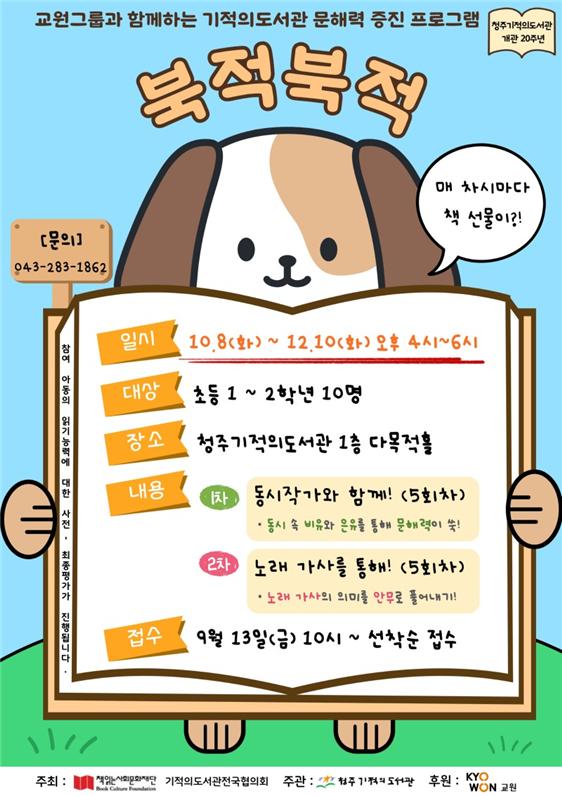 교원그룹과 함께하는 기적의도서관 문해력 증진 프로그램
청주기적의도서관
개관 20주년
북적북적
매 차시마다
책 선물이?!
[문의]
043-283-1862
참여 아동의 읽기능력에 대한 사전, 최종평가가 진행됩니다.
일시 10.8(화) ~ 12.10(화) 오후 4시~6시
대상 초등 1 ~ 2학년 10명
장소 청주기적의도서관 1층 다목적홀
내용 1차 동시작가와 함께! (5회차)
· 동시 속 비유와 은유를 통해 문해력이 쑥!
2차 노래 가사를 통해! (5회차)
· 노래 가사의 의미를 안무로 풀어내기!
접수 9월 13일(금) 10시 ~ 선착순 접수
주최 : 책읽는사회문화재단 Book Culture Foundation 기적의도서관전국협의회 주관 : 청주기적의도서관 후원 : KYOWON 교원